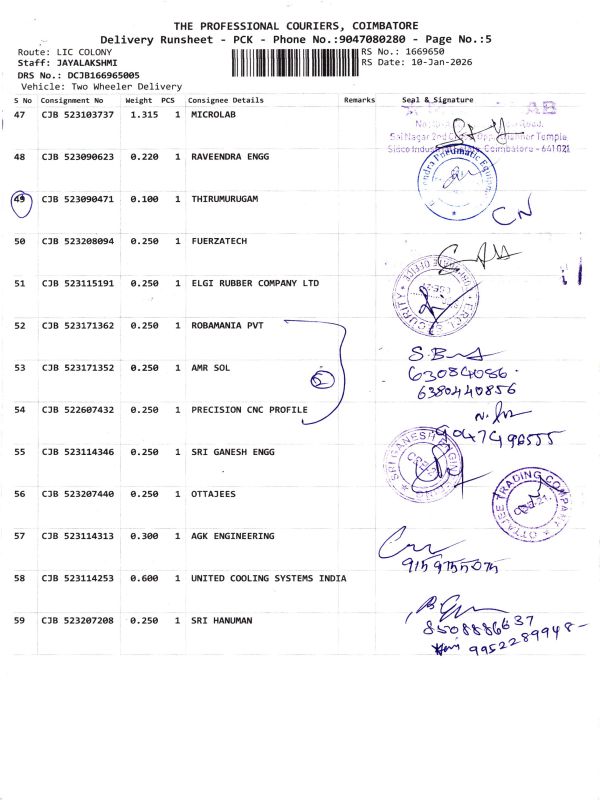 THE PROFESSIONAL COURIERS, COIMBATORE
Delivery Runsheet - PCK - Phone No.:9047080280 - Page No.:5
Route: LIC COLONY
RS No.: 1669650
Staff: JAYALAKSHMI
RS Date: 10-Jan-2026
DRS No.: DCJB166965005
Vehicle: Two Wheeler Delivery
S No Consignment No Weight PCS Consignee Details Remarks Seal & Signature
47 CJB 523103737 1.315 1 MICROLAB
Sai Nagar 2nd Temple
Coimbatore - 641021
48 CJB 523090623 0.220 1 RAVEENDRA ENGG
49 CJB 523090471 0.100 1 THIRUMURUGAM
CN
50 CJB 523208094 0.250 1 FUERZATECH
51 CJB 523115191 0.250 1 ELGI RUBBER COMPANY LTD
52 CJB 523171362 0.250 1 ROBAMANIA PVT
53 CJB 523171352 0.250 1 AMR SOL
63084086
6380440856
54 CJB 522607432 0.250 1 PRECISION CNC PROFILE
55 CJB 523114346 0.250 1 SRI GANESH ENGG
SRI GANESH
56 CJB 523207440 0.250 1 OTTAJEES
OTTAJEE TRADING COMPANY
57 CJB 523114313 0.300 1 AGK ENGINEERING
58 CJB 523114253 0.600 1 UNITED COOLING SYSTEMS INDIA
59 CJB 523207208 0.250 1 SRI HANUMAN
8508886637
9952289948